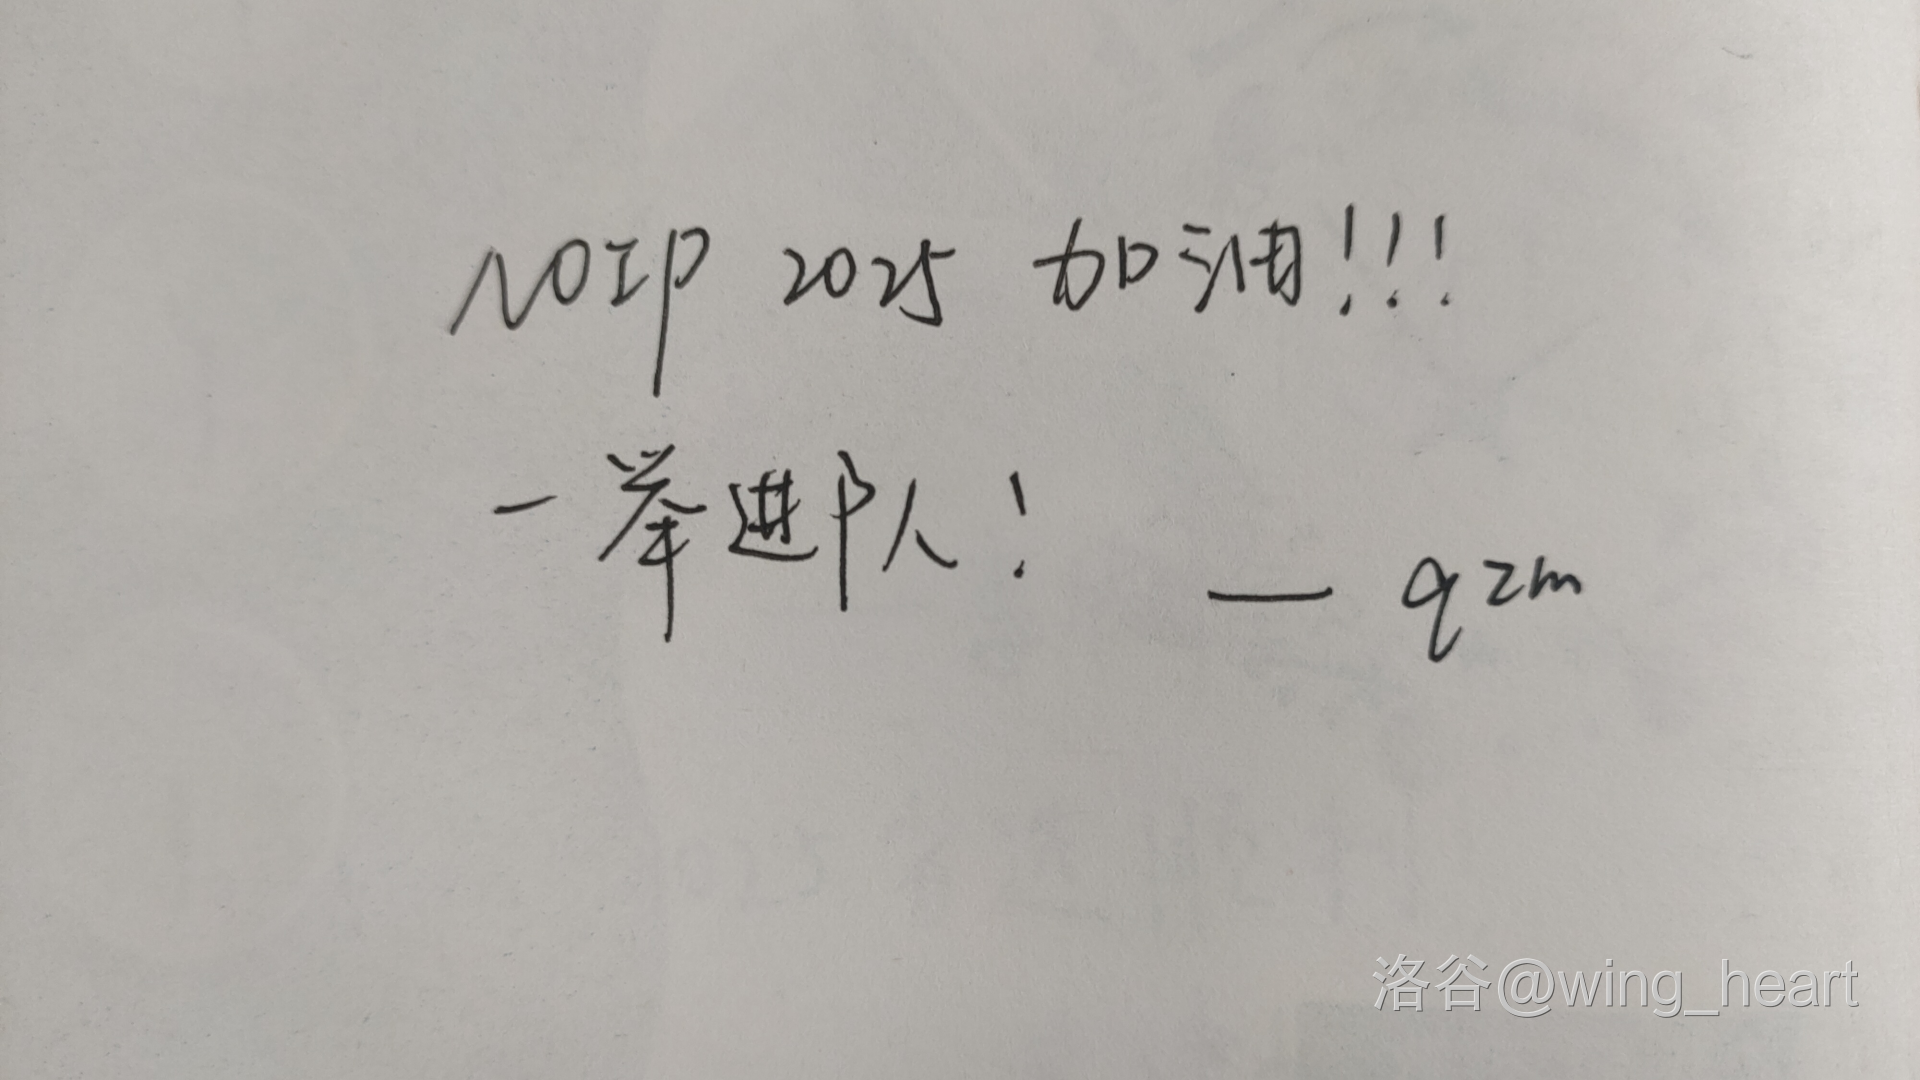 NOIP 2025 加油!!!
一举进队!
— qzm
洛谷@wing_heart